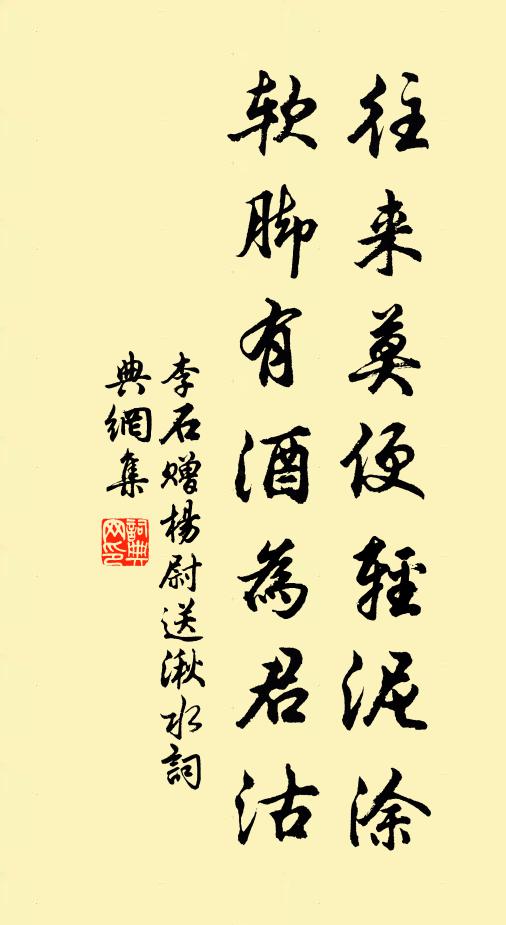 往来莫便輕泥涂
软脚有酒為君沽
李石赠楊尉送湫水詞
典網集
詞典
网印